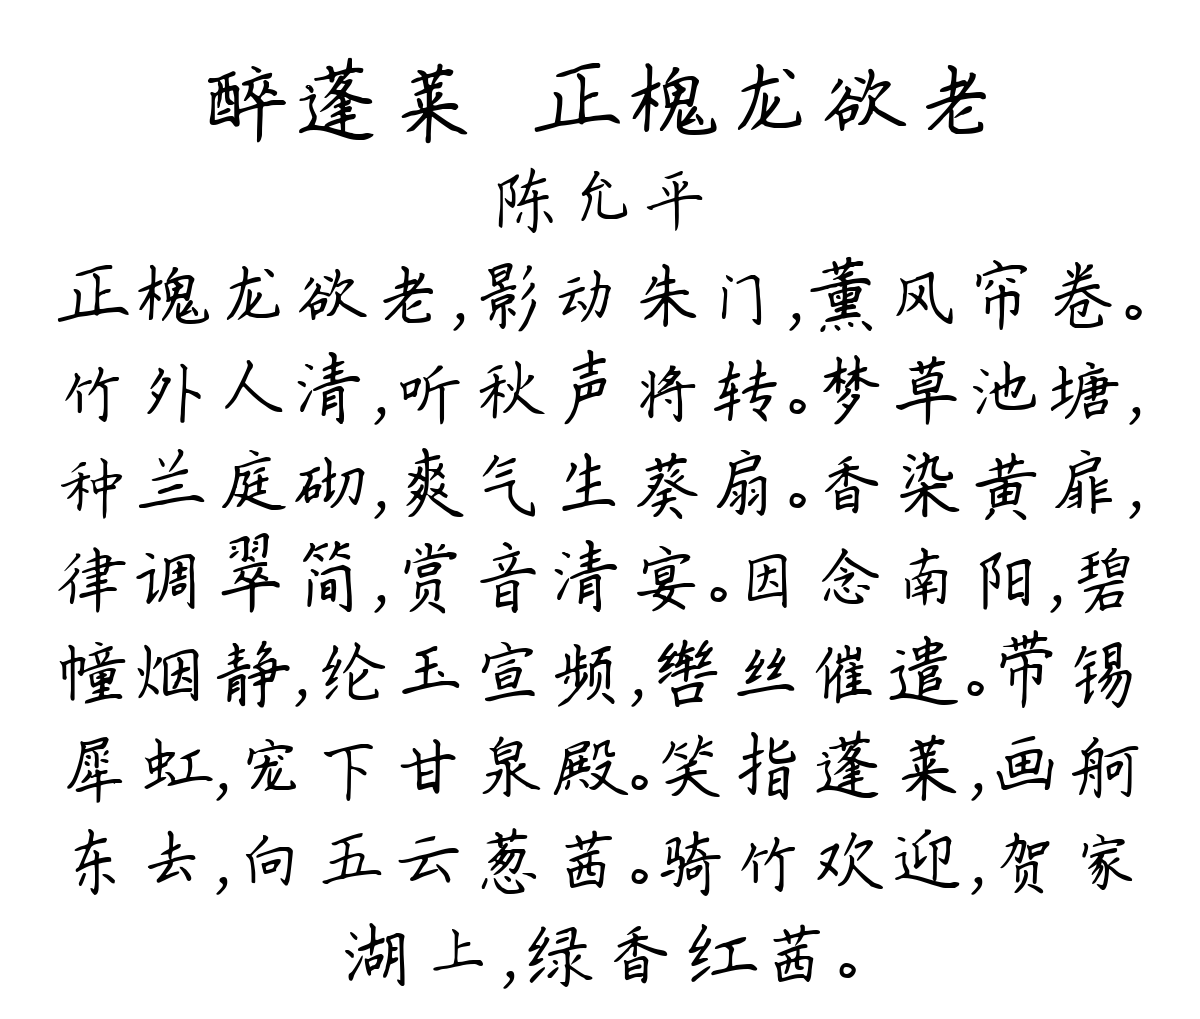 醉蓬莱 正槐龙欲老
陈允平
正槐龙欲老,影动朱门,薰风帘卷。
竹外人清,听秋声将转。梦草池塘,
种兰庭砌,爽气生葵扇。香染黄扉,
律调翠简,赏音清宴。因念南阳,碧
幢烟静,纶玉宣频,辔丝催遣。带锡
犀虹,宠下甘泉殿。笑指蓬莱,画舸
东去,向五云葱茜。骑竹欢迎,贺家
湖上,绿香红茜。